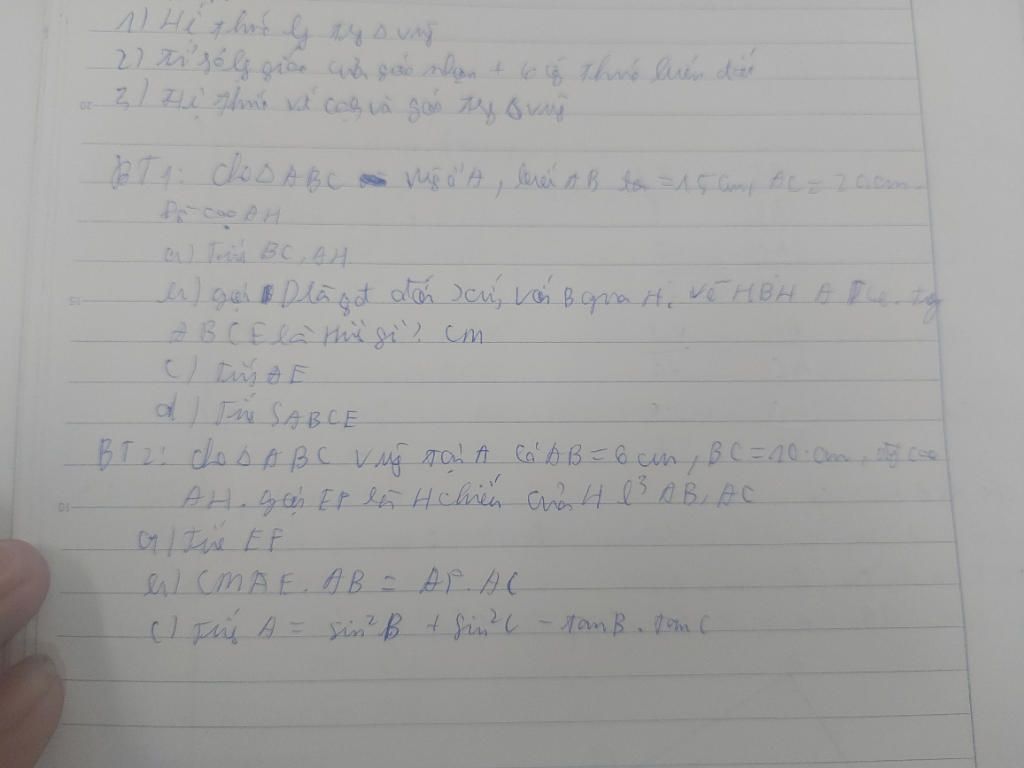 1) Hệ thức lg tg Δ vug
2) Tỉ số lg giác của góc nhọn +
3) Hệ thức về cạg và góc tg Δ vug
BT1: cho Δ ABC vug ở A, AB = 15 cm, AC = 20 cm.
AH
a) Tính BC, AH
b) gọi D là đối xứ, với B qua H. vẽ HBH A
ABCE là Hình gì? CM
c) Tính AE
d) Tính SABCE
BT2: cho Δ ABC vug tại A có AB = 6 cm, BC = 10 cm, đg cao
AH. gọi EF là H chiếu của H AB, AC
a) Tính EF
b) CM AE. AB = AF. AC
c) Tính A = sin²B + sin²C - tanB. tanC